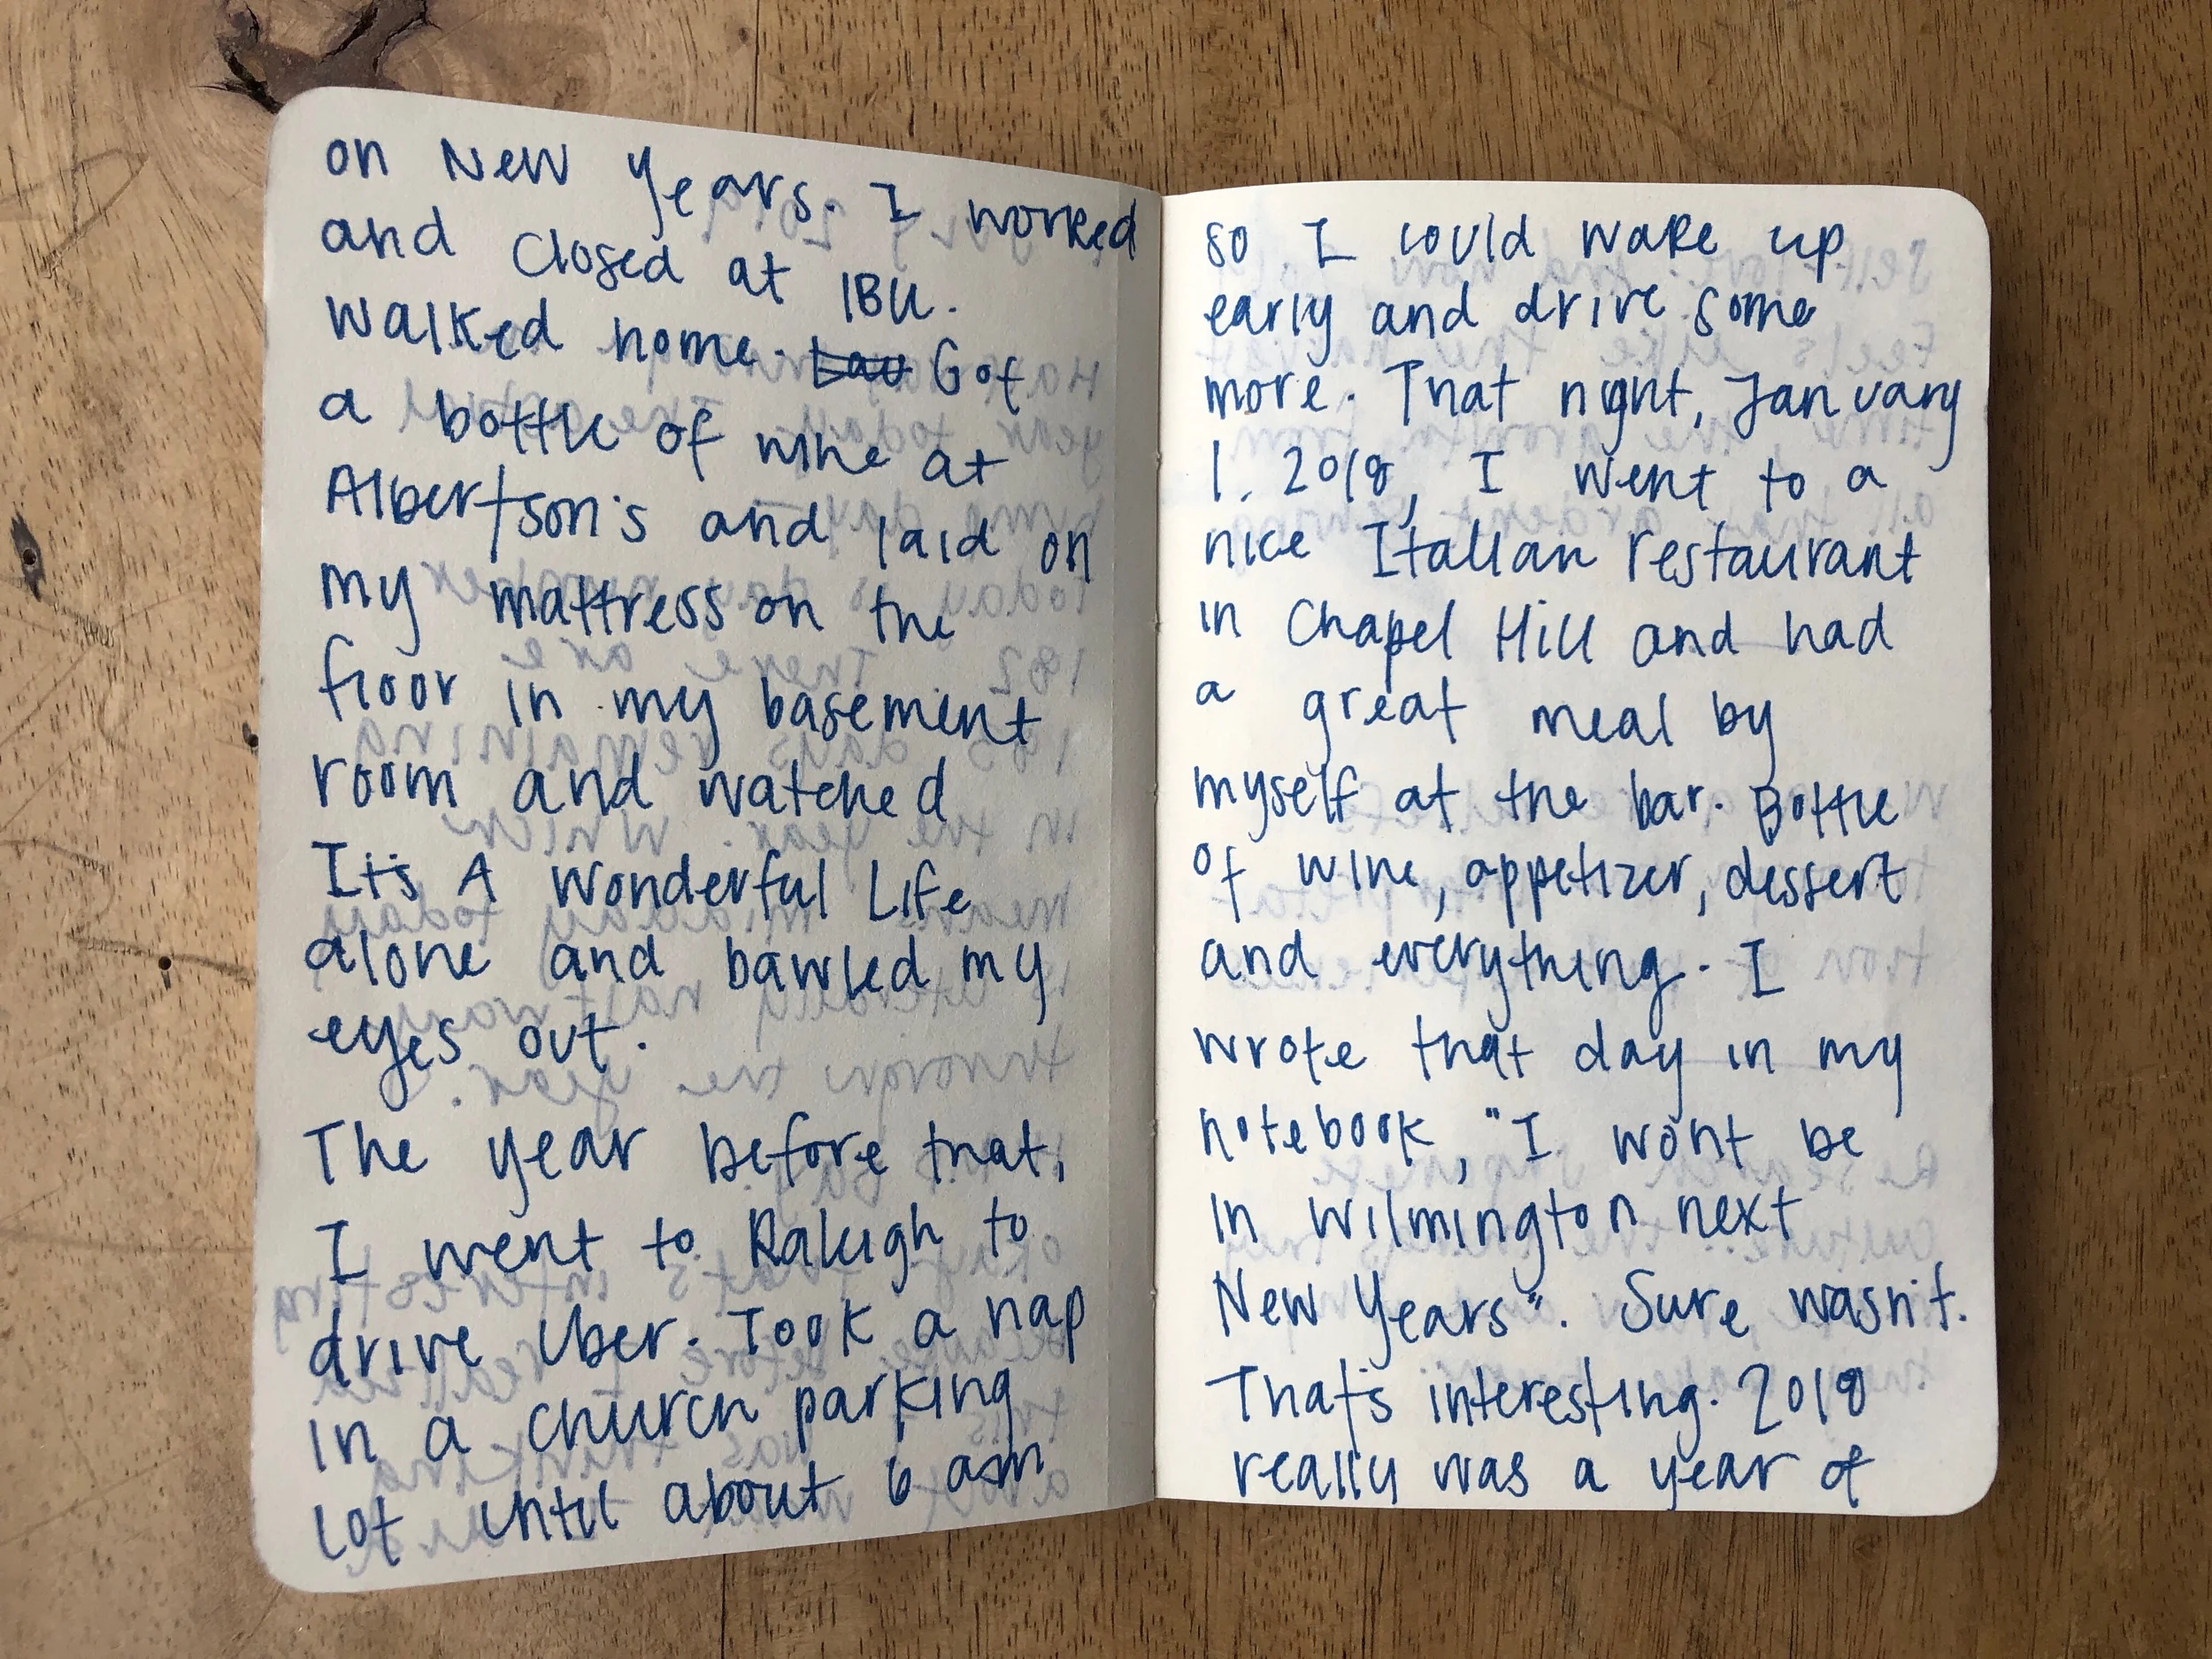 on New Years. I worked
and closed at IBU.
Walked home. Lau Got
a bottle of wine at
Albertson's and laid on
my mattress on the
floor in my basement
room and watched
It's A Wonderful Life
alone and bawled my
eyes out.
The year before that,
I went to Raleigh to
drive Uber. Took a nap
in a church parking
lot until about 6 am
so I could wake up
early and drive some
more. That night, January
1, 2018, I went to a
nice Italian restaurant
in Chapel Hill and had
a great meal by
myself at the bar. Bottle
of wine, appetizer, dessert
and everything. I
wrote that day in my
notebook, "I won't be
in Wilmington next
New Years". Sure wasn't.
That's interesting. 2018
really was a year of